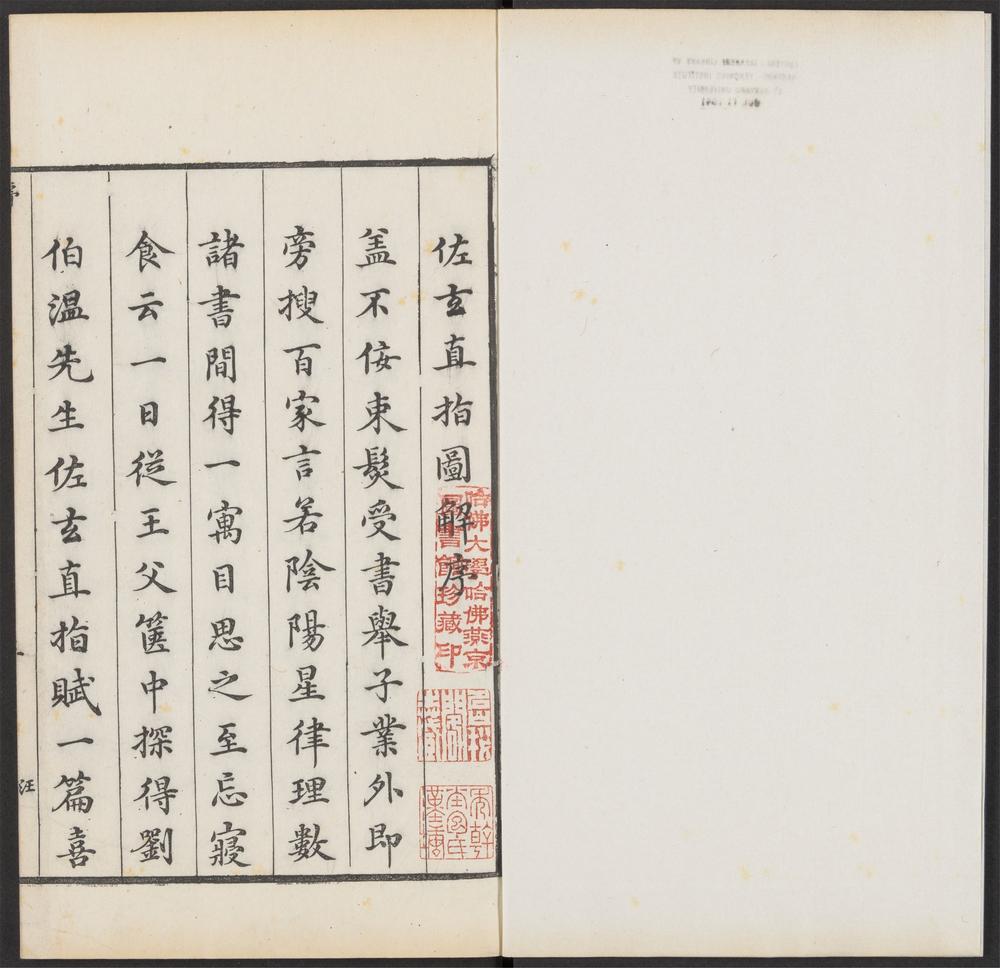 佐玄直指圖解序
盖不佞束髮受書舉子業外即
旁搜百家言若陰陽星律理數
諸書間得一寓目思之至忘寢
食云一日從王父篋中探得劉
伯溫先生佐玄直指賦一篇喜
哈佛大學哈佛燕京
圖書館珍藏印
序
汪